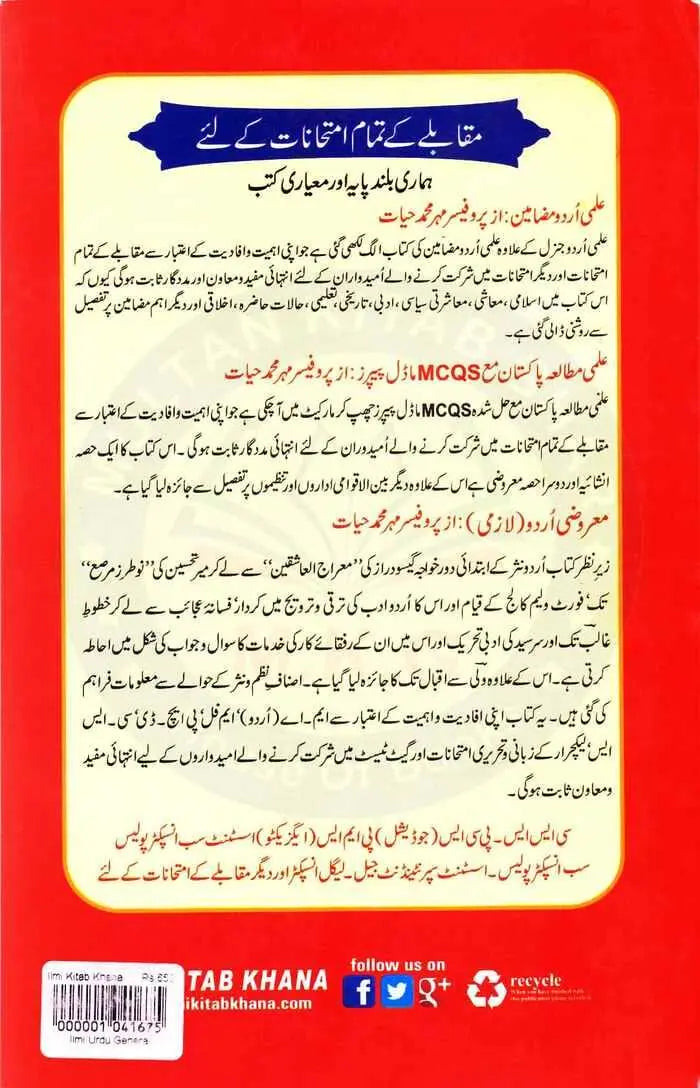 مقابلے کے تمام امتحانات کے لئے
ہماری بلند پایہ اور معیاری کتب
علمی اُردو مضامین: از پروفیسر مہر محمد حیات
علمی اُردو جنرل کے علاوہ علمی اُردو مضامین کی کتاب الگ لکھی گئی ہے جو اپنی اہمیت وافادیت کے اعتبار سے مقابلے کے تمام
امتحانات اور دیگر امتحانات میں شرکت کرنے والے اُمیدواران کے لئے انتہائی مفید ومعاون اور مددگار ثابت ہوگی کیوں کہ
اس کتاب میں اسلامی، معاشی، معاشرتی سیاسی، ادبی، تاریخی، تعلیمی، حالات حاضرہ، اخلاقی اور دیگر اہم مضامین پر تفصیل
سے روشنی ڈالی گئی ہے۔
علمی مطالعہ پاکستان مع MCQS ماڈل پیپرز: از پروفیسر مہر محمد حیات
علمی مطالعہ پاکستان مع حل شدہ MCQS ماڈل پیپرز چھپ کر مارکیٹ میں آچکی ہے جو اپنی اہمیت وافادیت کے اعتبار سے
مقابلے کے تمام امتحانات میں شرکت کرنے والے اُمیدوران کے لئے انتہائی مددگار ثابت ہوگی۔ اس کتاب کا ایک حصہ
انشائیہ اور دوسرا حصہ معروضی ہے اس کے علاوہ دیگر بین الاقوامی اداروں اور تنظیموں پر تفصیل سے جائزہ لیا گیا ہے۔
معروضی اُردو (لازمی): از پروفیسر مہر محمد حیات
زیرِ نظر کتاب اُردو نثر کے ابتدائی دور خواجہ گیسو دراز کی "معراج العاشقین" سے لے کر میر تحسین کی "نوطرز مرصع"
تک، فورٹ ولیم کالج کے قیام اور اس کا اُردو ادب کی ترقی و ترویج میں کردار، فسانۂ عجائب سے لے کر خطوطِ
غالبؔ تک اور سرسید کی ادبی تحریک اور اس میں ان کے رفقائے کار کی خدمات کا سوال و جواب کی شکل میں احاطہ
کرتی ہے۔ اس کے علاوہ ولیؔ سے اقبال تک کا جائزہ لیا گیا ہے۔ اصنافِ نظم و نثر کے حوالے سے معلومات فراہم
کی گئی ہیں۔ یہ کتاب اپنی افادیت و اہمیت کے اعتبار سے ایم۔ اے (اُردو)، ایم فل، پی ایچ۔ ڈی، سی۔ ایس
ایس، لیکچرار کے زبانی و تحریری امتحانات اور گیٹ ٹیسٹ میں شرکت کرنے والے امیدواروں کے لیے انتہائی مفید
و معاون ثابت ہوگی۔
سی ایس ایس۔ پی سی ایس (جوڈیشل) پی ایم ایس (ایگزیکٹو) اسسٹنٹ سب انسپکٹر پولیس
سب انسپکٹر پولیس۔ اسسٹنٹ سپرنٹینڈنٹ جیل۔ لیگل انسپکٹر اور دیگر مقابلے کے امتحانات کے لئے
Ilmi Kitab Khana
000001 041675
Ilmi Urdu General
ITAB KHANA
ikitabkhana.com
follow us on
f g+
recycle